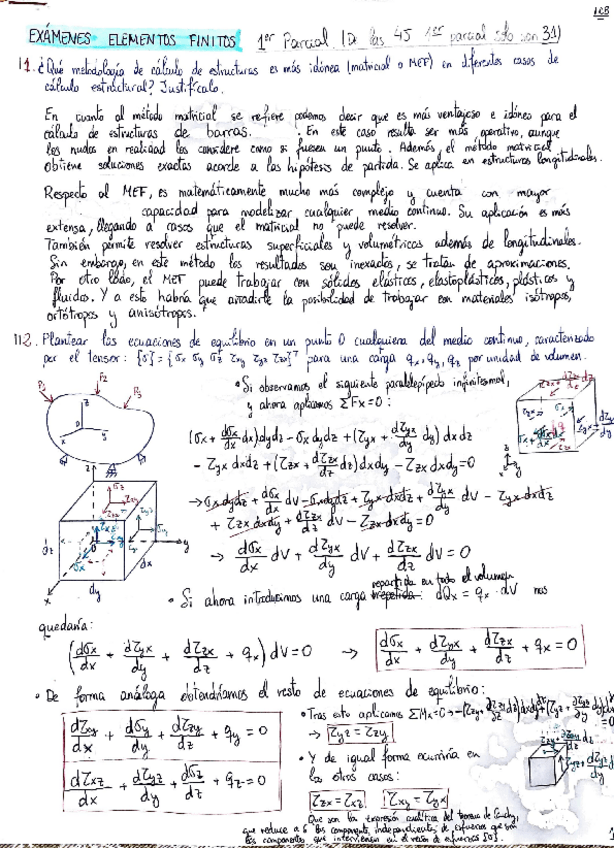 EXÁMENES ELEMENTOS FINITOS 1er Parcial (De las 45 1er parcial sólo son 31)
11. ¿Qué metodología de cálculo de estructuras es más idónea (matricial o MEF) en diferentes casos de
cálculo estructural? Justifícalo.
En cuanto al método matricial se refiere podemos decir que es más ventajoso e idóneo para el
cálculo de estructuras de barras. En este caso resulta ser más operativo, aunque
los nudos en realidad los considere como si fuesen un punto. Además, el método matricial
obtiene soluciones exactas acorde a las hipótesis de partida. Se aplica en estructuras longitudinales.
Respecto al MEF, es matemáticamente mucho más complejo y cuenta con mayor
capacidad para modelizar cualquier medio continuo. Su aplicación es más
extensa, llegando a casos que el matricial no puede resolver.
También permite resolver estructuras superficiales y volumétricas además de longitudinales.
Sin embargo, en este método los resultados son inexactos, se tratan de aproximaciones.
Por otro lado, el MEF puede trabajar con sólidos elásticos, elastoplásticos, plásticos y
fluidos. Y a esto habría que añadirle la posibilidad de trabajar con materiales isótropos,
ortótropos y anisótropos.
112. Plantear las ecuaciones de equilibrio en un punto O cualquiera del medio continuo, caracterizado
por el tensor: {σ} = {σx σy σz τxy τyz τzx}ᵀ para una carga qx, qy, qz por unidad de volumen.
• Si observamos el siguiente paralelepípedo infinitesimal,
y ahora aplicamos ΣFx=0:
(σx + dσx/dx dx)dydz - σx dydz + (τyx + dτyx/dy dy) dxdz
- τyx dxdz + (τzx + dτzx/dz dz)dxdy - τzx dxdy = 0
→ σx dydz + dσx/dx dV - σx dydz + τyx dxdz + dτyx/dy dV - τyx dxdz
+ τzx dxdy + dτzx/dz dV - τzx dxdy = 0
→ dσx/dx dV + dτyx/dy dV + dτzx/dz dV = 0
repartida en todo el volumen
• Si ahora introducimos una carga repetida: dQx = qx · dV nos
quedaría:
(dσx/dx + dτyx/dy + dτzx/dz + qx) dV = 0 → dσx/dx + dτyx/dy + dτzx/dz + qx = 0
• De forma análoga obtendríamos el resto de ecuaciones de equilibrio:
dτxy/dx + dσy/dy + dτzy/dz + qy = 0
dτxz/dx + dτyz/dy + dσz/dz + qz = 0
• Tras esto aplicamos ΣMx=0
→ τyz = τzy
• Y de igual forma ocurriría en
los otros casos:
τzx = τxz τxy = τyx
Que son la expresión analítica del teorema de Cauchy,
que reduce a 6 las componentes independientes de esfuerzos que son
las componentes que intervienen en el vector de esfuerzos {σ}.